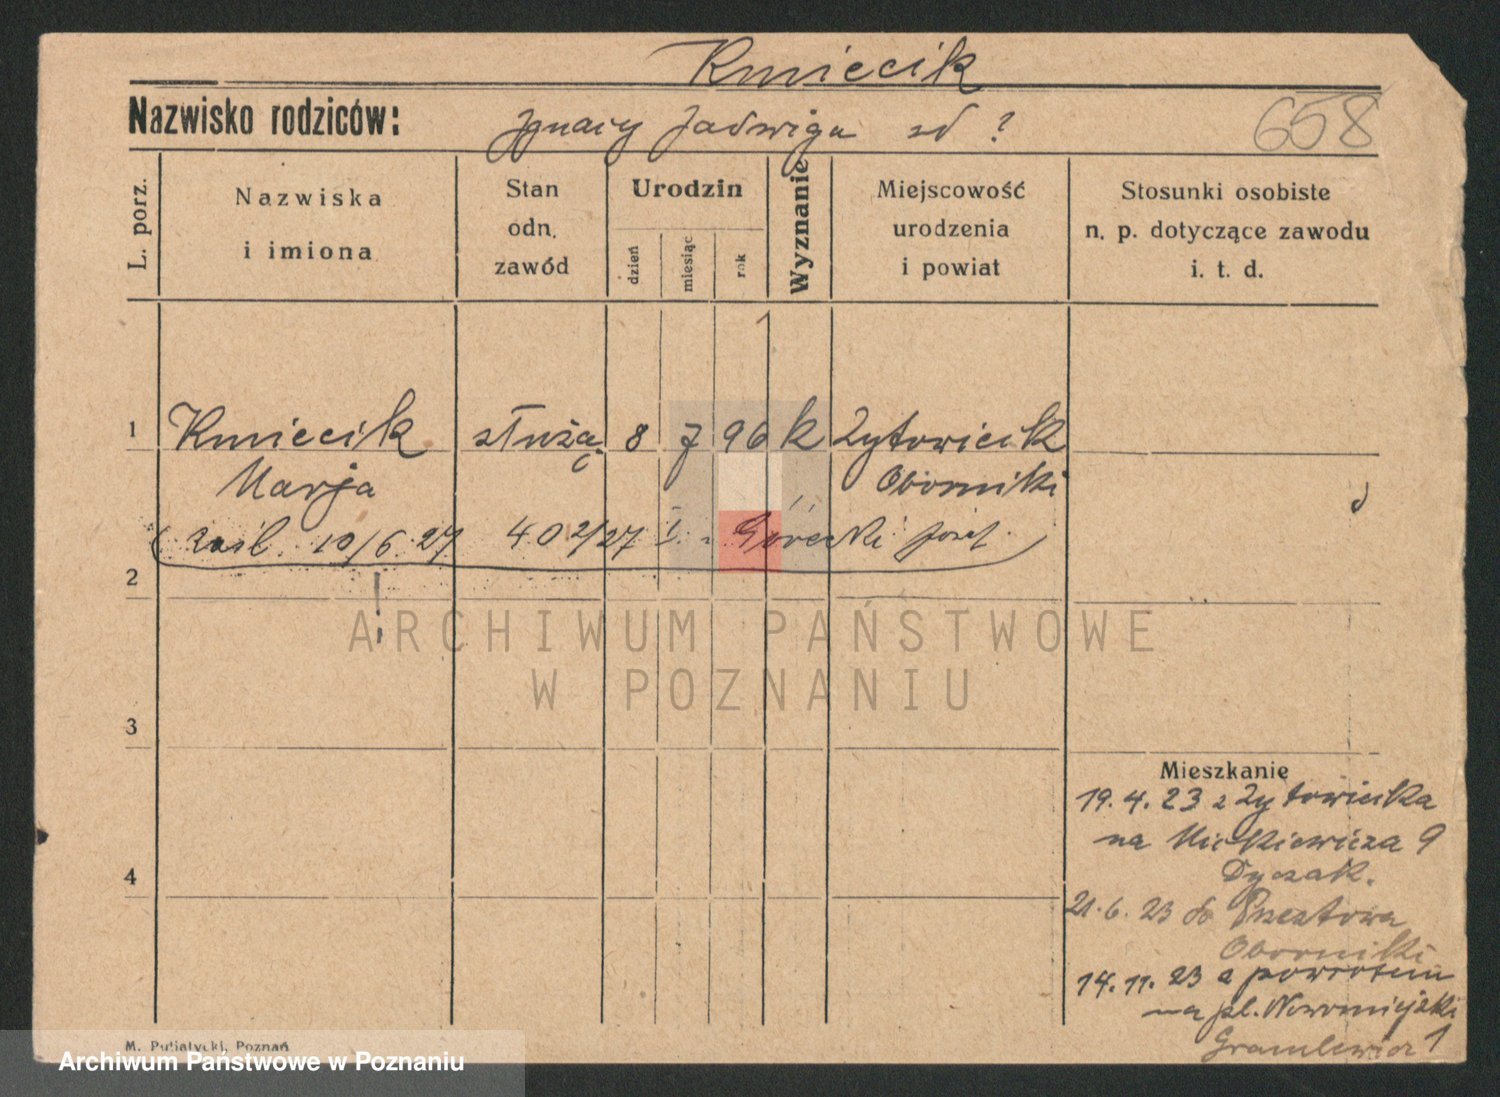 Kmiecik
Nazwisko rodziców: Ignacy Jadwiga zd ?
658
L. porz.
Nazwiska
i imiona
Stan
odn.
zawód
Urodzin
dzień
miesiąc
rok
Wyznanie
Miejscowość
urodzenia
i powiat
Stosunki osobiste
n. p. dotyczące zawodu
i. t. d.
1 Kmiecik służą. 8 7 96 k Żytowiecik
Marja Oborniki
zaśl. 10/6. 27 402/27 I. Górecki Józef.
2
3
4
ARCHIWUM PAŃSTWOWE
W POZNANIU
Mieszkanie
19. 4. 23 z Żytowiecka
na Mickiewicza 9
21. 6. 23 do
Oborniki
14. 11. 23 z powrotem
na pl. Nowomiejski
1
M. Putiatycki, Poznań
Archiwum Państwowe w Poznaniu